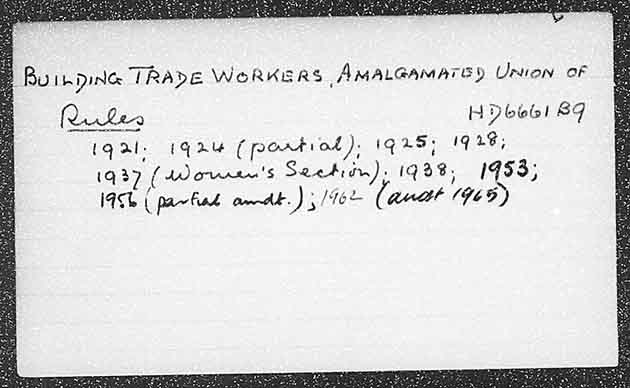 BUILDING TRADE WORKERS, AMALGAMATED UNION OF
Rules HD6661 B9
1921; 1924 (partial); 1925; 1928;
1937 (Women's Section); 1938; 1953;
1956 (partial amdt.); 1962 (amdt 1965)